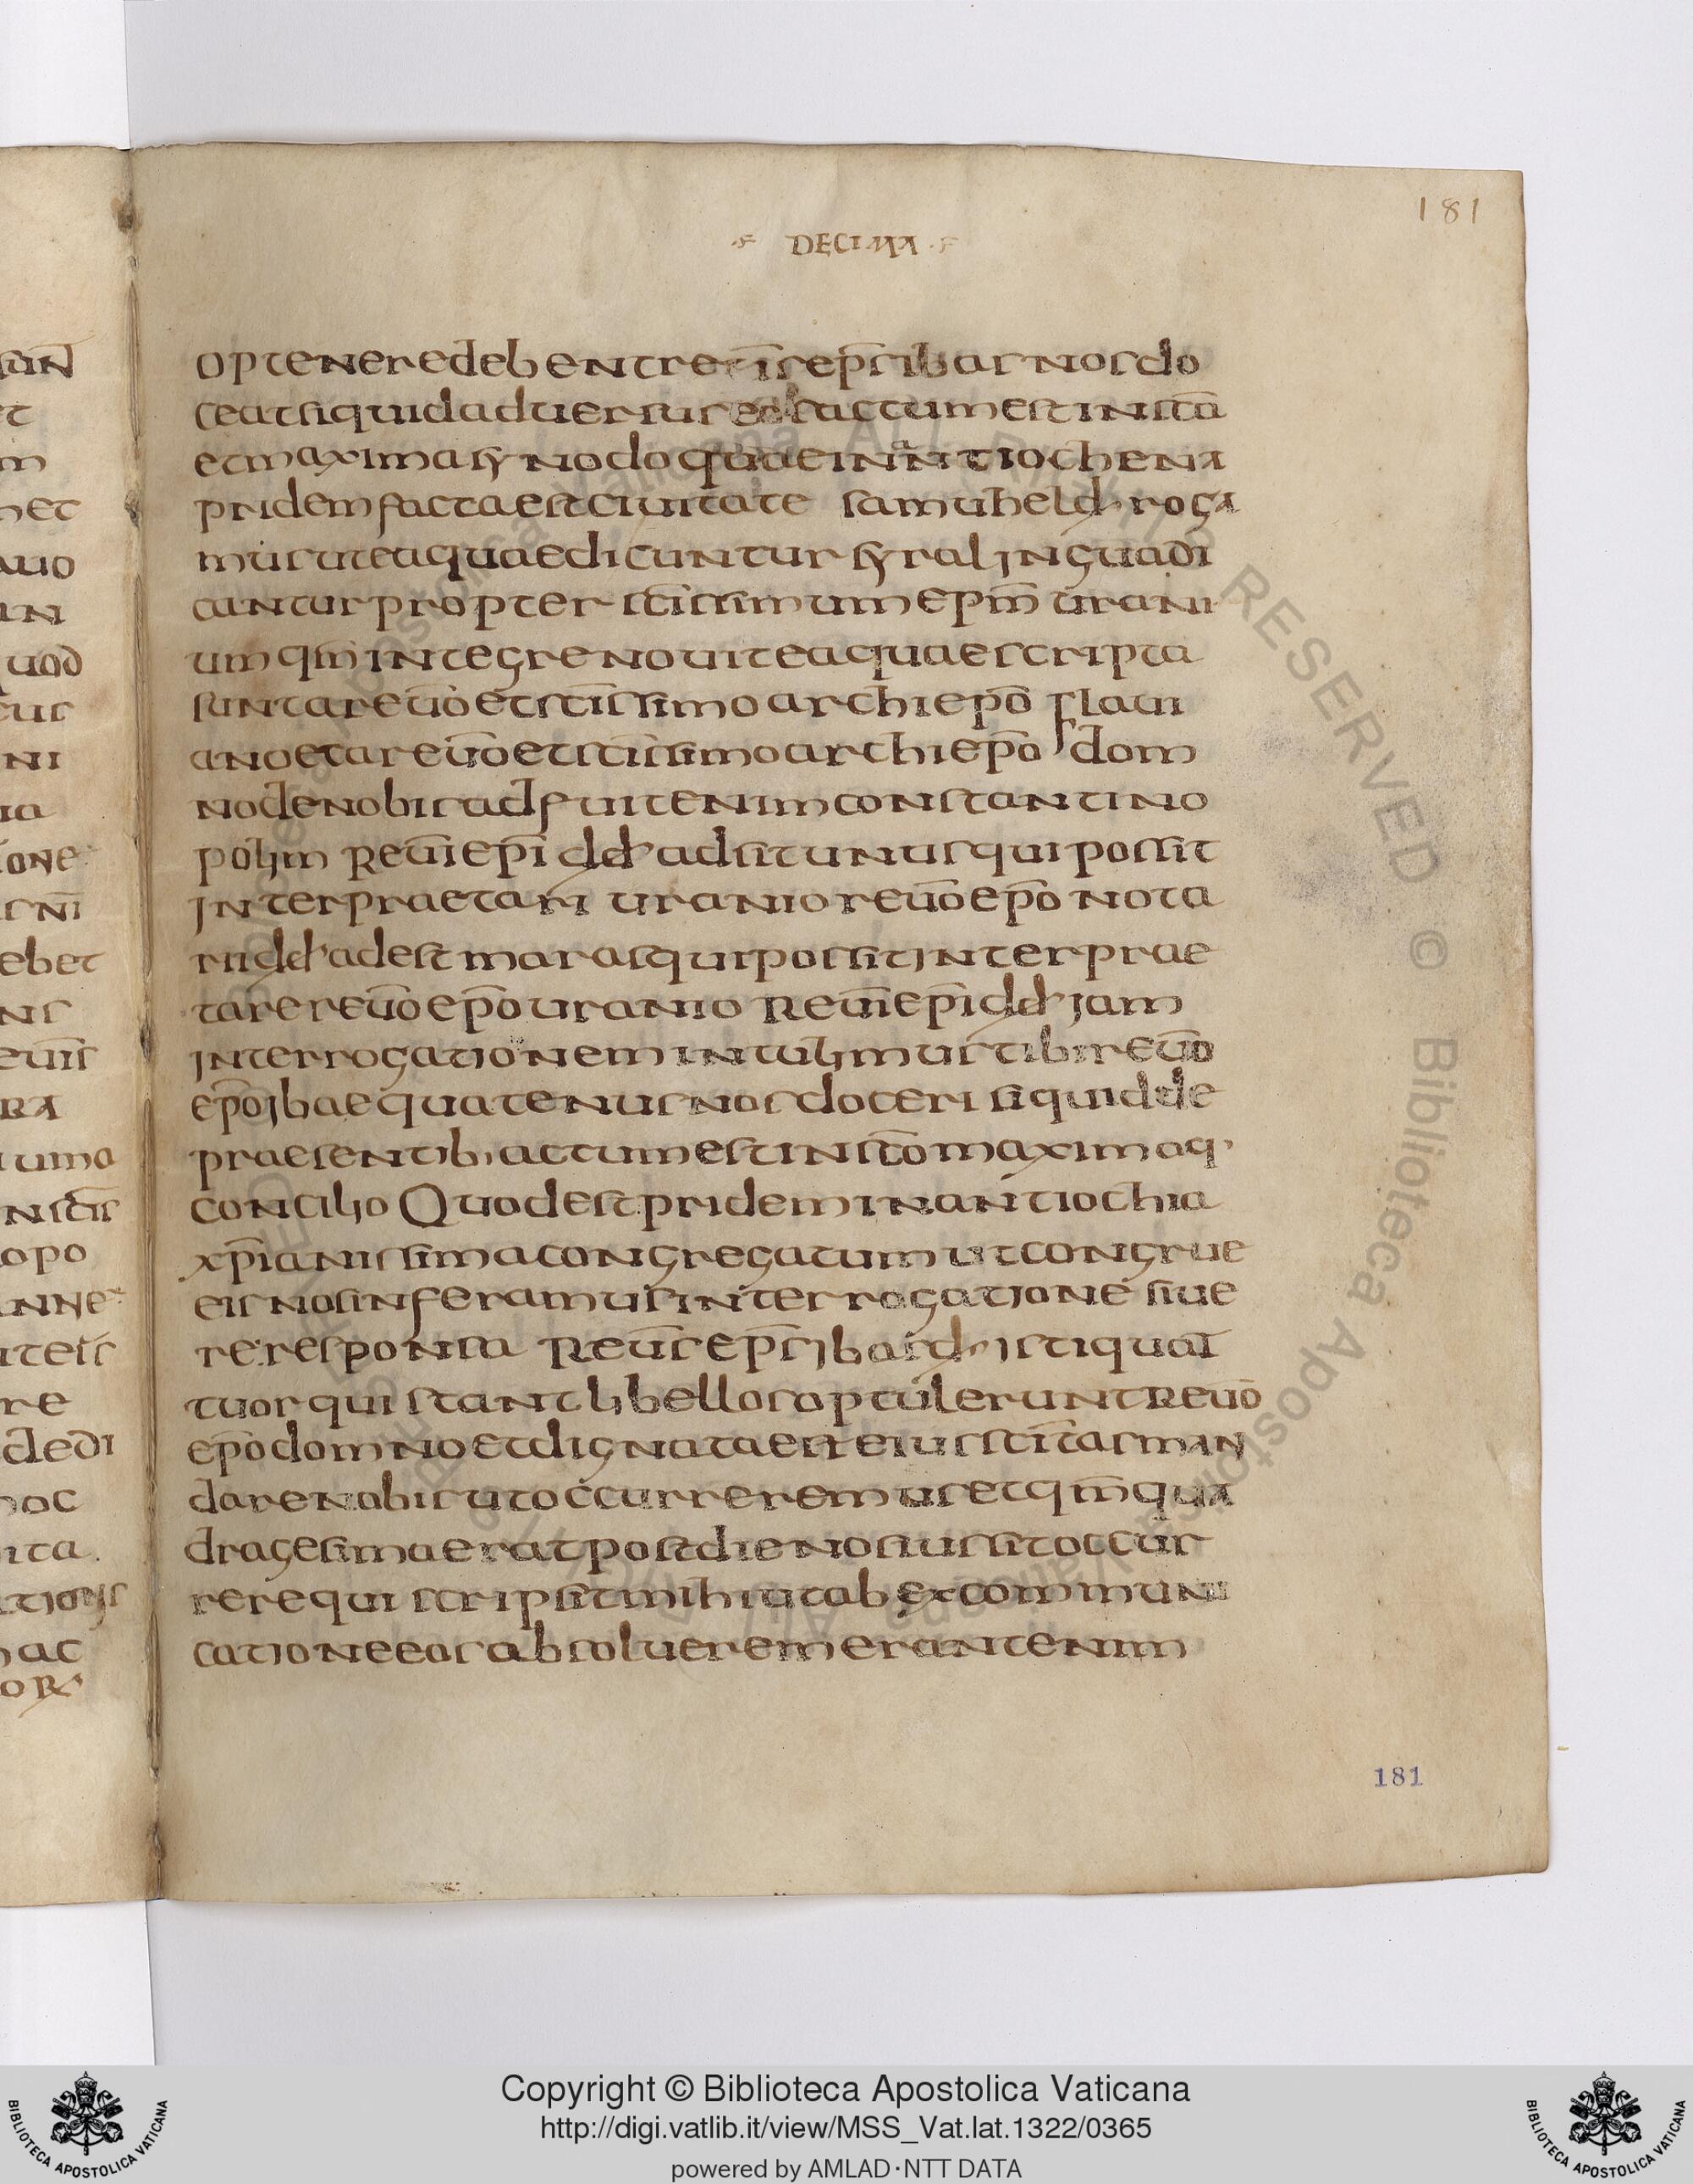 181
DECIMA
optenere debent reū̄s ep̄s ibas nos do
ceat si quid aduersus eos actum est in s̄c̄a
et maxima synodo quae in antiochena
pridem facta est ciuitate samuhel d̄ roga
mus ut ea quae dicuntur syra lingua di
cantur propter s̄c̄issimum ep̄m urani
um qm̄ integre nouit ea quae scripta
sunt a reū̄o et s̄c̄issimo archiep̄o flaui
ano et a reū̄o et s̄c̄issimo archiep̄o dom
no de nobis adfuit enim constantino
polim Reū̄i ep̄i dd̄ adsit unus qui possit
interpraetari uranio reū̄o ep̄o nota
rii dd̄ adest maras qui possit interprae
tare reū̄o ep̄o uranio Reū̄i ep̄i dd̄ iam
interrogationem intulimus tibi reū̄o
ep̄o ibae quatenus nos doceri si quid de
praesentib· actum est in s̄c̄o maximoq·
concilio Quod est pridem in antiochia
xp̄ianissima congregatum ut congrue
eis nos inferamus interrogationē siue
re responsa Reū̄s ep̄s ibas d̄ isti quat
tuor qui stant libellos optulerunt Reū̄o
ep̄o domno et dignata est eius s̄c̄itas man
dare nobis ut occurreremus et qm̄ qua
dragesima erat post die nos iussit occur
rere qui scripsit mihi ut ab excommuni
catione eos absoluerem erant enim
181
Copyright © Biblioteca Apostolica Vaticana
http://digi.vatlib.it/view/MSS_Vat.lat.1322/0365
powered by AMLAD·NTT DATA